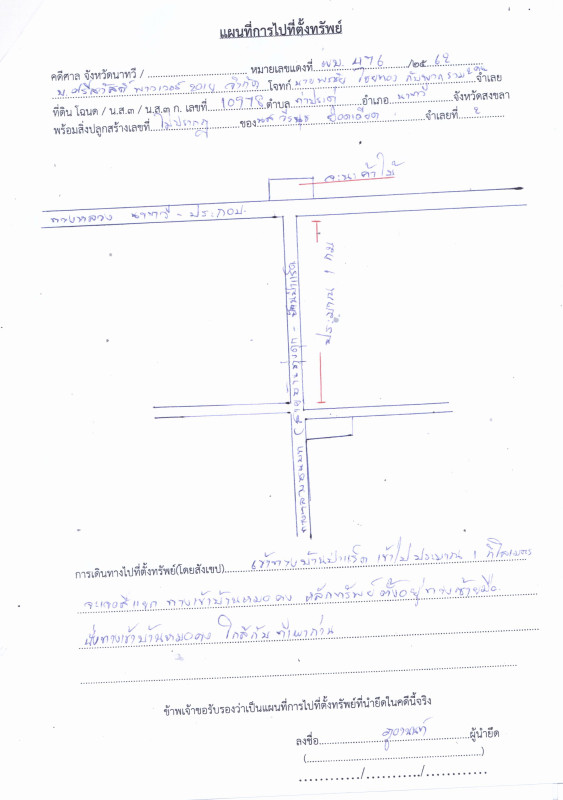 แผนที่การไปที่ตั้งทรัพย์
คดีศาล จังหวัดนาทวี / หมายเลขแดงที่ ผบ. 476 /๒๕ 62
จำกัด โจทก์ นายพรชัย กับพวกรวม 2 คน จำเลย
ที่ดิน โฉนด / น.ส.๓ / น.ส.๓ ก. เลขที่ 10978 ตำบล ท่าประดู่ อำเภอ นาทวี จังหวัดสงขลา
พร้อมสิ่งปลูกสร้างเลขที่ ไม่ปรากฏ ของ จำเลยที่ 2
จะนะค้าไม้
ทางหลวง นาทวี - ประกอบ
ประมาณ 1 กม
การเดินทางไปที่ตั้งทรัพย์(โดยสังเขป) เข้าทางบ้านป่าแร็ด เข้าไปประมาณ 1 กิโลเมตร
จะเจอสี่แยก ทางเข้าบ้าน หลักทรัพย์ตั้งอยู่ทางซ้ายมือ
ทางเข้าบ้าน ใกล้กับที่เผาถ่าน
ข้าพเจ้าขอรับรองว่าเป็นแผนที่การไปที่ตั้งทรัพย์ที่นำยึดในคดีนี้จริง
ลงชื่อ ผู้นำยึด
(                    )
/ /